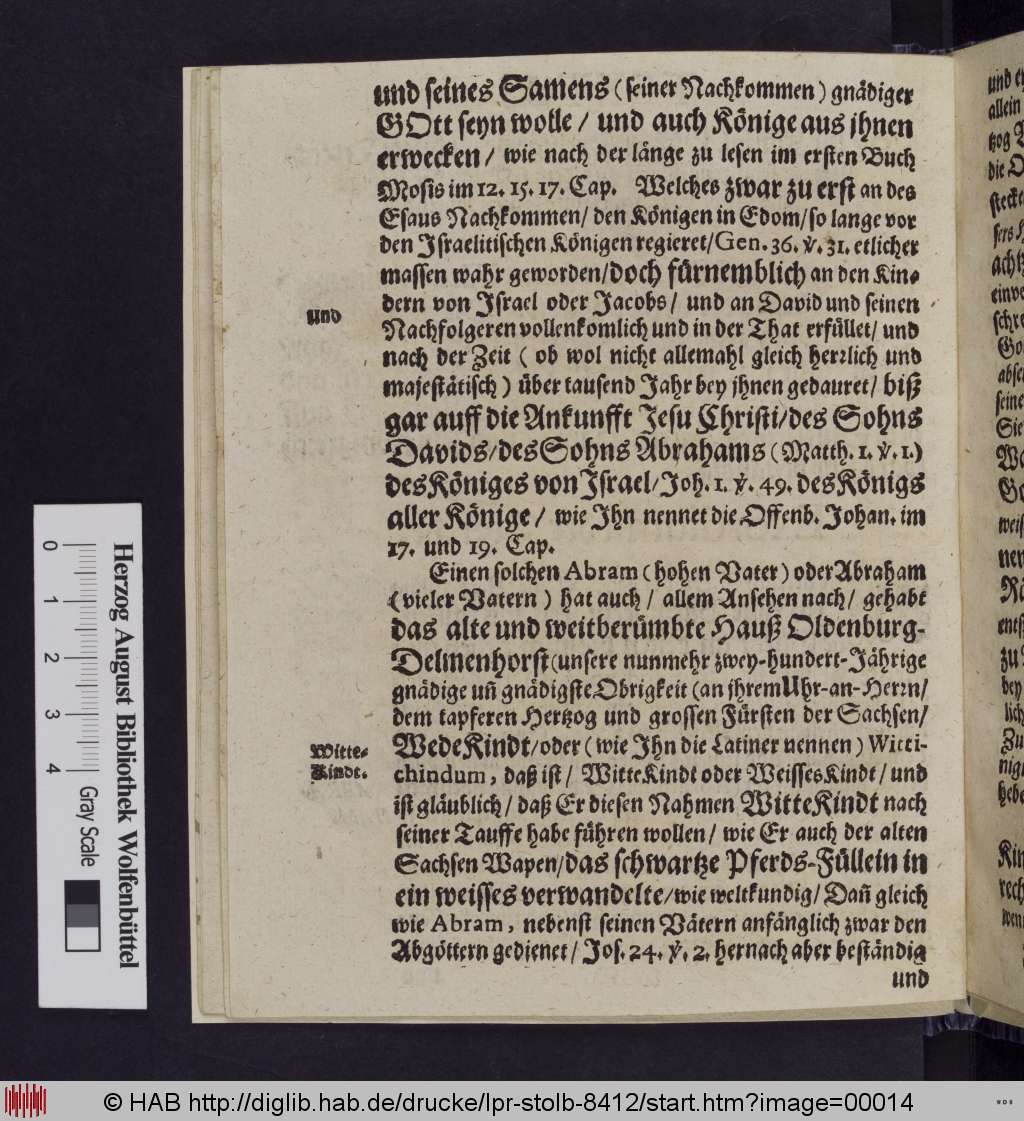 und seines Samens (seiner Nachkommen) gnädiger
GOtt seyn wolle / und auch Könige aus jhnen
erwecken / wie nach der länge zu lesen im ersten Buch
Mosis im 12. 15. 17. Cap. Welches zwar zu erst an des
Esaus Nachkommen / den Königen in Edom / so lange vor
den Israelitischen Königen regieret / Gen. 36. ℣. 31. etlicher
massen wahr geworden / doch fürnemblich an den Kin-
dern von Israel oder Jacobs / und an David und seinen
und
Nachfolgeren vollenkomlich und in der That erfüllet / und
nach der Zeit ( ob wol nicht allemahl gleich herrlich und
majestätisch ) über tausend Jahr bey jhnen gedauret / biß
gar auff die Ankunfft Jesu Christi / des Sohns
Davids / des Sohns Abrahams (Matth. 1. ℣. 1.)
des Königes von Israel / Joh. 1. ℣. 49. des Königs
aller Könige / wie Ihn nennet die Offenb. Johan. im
17. und 19. Cap.
Einen solchen Abram (hohen Vater) oder Abraham
(vieler Vatern ) hat auch / allem Ansehen nach / gehabt
das alte und weitberümbte Hauß Oldenburg-
Delmenhorst (unsere nunmehr zwey-hundert-Jährige
gnädige uñ gnädigste Obrigkeit (an jhrem Uhr-an-Herrn /
dem tapferen Hertzog und grossen Fürsten der Sachsen /
Witte-
Kindt.
WedeKindt / oder ( wie Ihn die Latiner nennen ) Witti-
chindum, daß ist / WitteKindt oder WeissesKindt / und
ist gläublich / daß Er diesen Nahmen WitteKindt nach
seiner Tauffe habe führen wollen / wie Er auch der alten
Sachsen Wapen / das schwartze Pferds-Füllein in
ein weisses verwandelte / wie weltkundig / Dañ gleich
wie Abram, nebenst seinen Vätern anfänglich zwar den
Abgöttern gedienet / Jos. 24. ℣. 2. hernach aber beständig
und
Herzog August Bibliothek Wolfenbüttel
0 1 2 3 4
Gray Scale
© HAB http://diglib.hab.de/drucke/lpr-stolb-8412/start.htm?image=00014